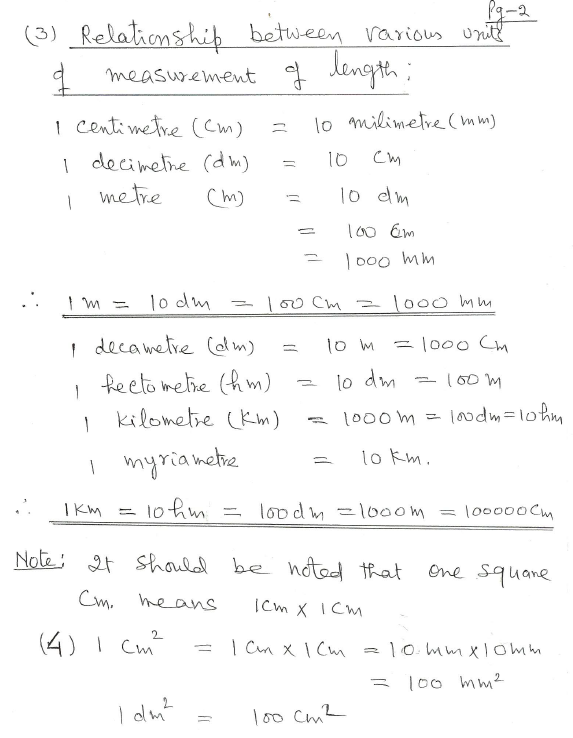 Pg-2
(3) Relationship between various units
of measurement of length:
1 centimetre (cm) = 10 milimetre (mm)
1 decimetre (dm) = 10 cm
1 metre (m) = 10 dm
= 100 cm
= 1000 mm
∴ 1 m = 10 dm = 100 cm = 1000 mm
1 decametre (dm) = 10 m = 1000 cm
1 hectometre (hm) = 10 dm = 100 m
1 kilometre (km) = 1000 m = 100dm = 10hm
1 myriametre = 10 km.
∴ 1 km = 10 hm = 100 dm = 1000m = 100000 cm
Note: It should be noted that one square
cm. means 1cm x 1cm
(4) 1 cm² = 1 cm x 1 cm = 10 mm x 10mm
= 100 mm²
1 dm² = 100 cm²